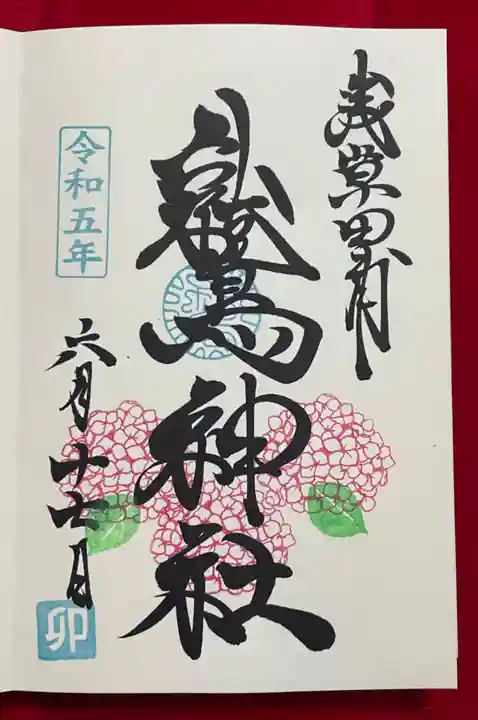 浅草田甫
鷲神社
令和五年
六月十七日
卯